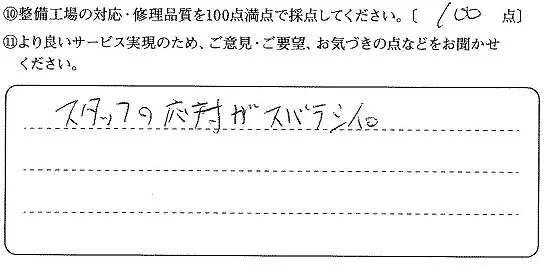 ⑩整備工場の対応・修理品質を100点満点で採点してください。〔 100 点〕
⑪より良いサービス実現のため、ご意見・ご要望、お気づきの点などをお聞かせ
ください。
スタッフの応対がスバラシイ。